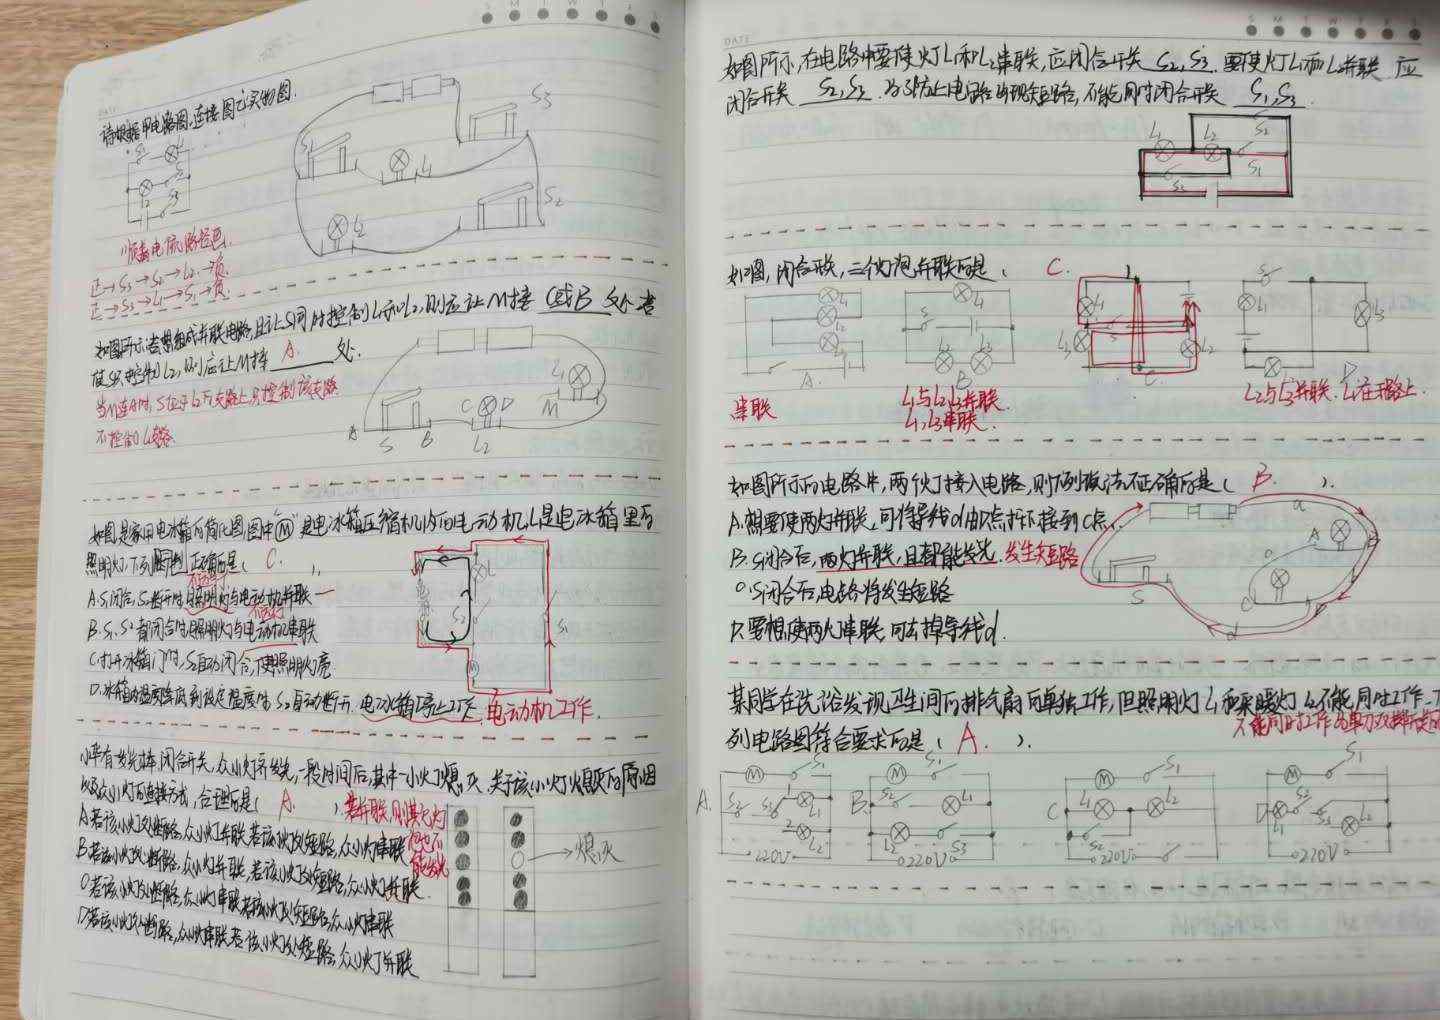 请根据甲电路图,连接图乙实物图.
S₁ L₁
S₂
L₂
S₃
S₃
S₁ L₁
S₂
L₂
顺着电流路径画.
正→S₃→S₂→L₂→负.
正→S₃→L₁→S₁→负.
如图所示,若想组成并联电路,且让S同时控制L₁和L₂,则应让M接 C或B 处,若
使S只控制L₂,则应让M接 A. 处.
当M连A时,S位于L₂所在支路上,只控制该支路
不控制L₁支路.
L₁
C D M
A S B L₂
如图是家用电冰箱的简化图,图中"Ⓜ"是电冰箱压缩机内的电动机,L是电冰箱里的
照明灯,下列 正确的是( C. ).
A.S₁闭合,S₂断开时,照明灯与电动机并联
B.S₁,S₂都闭合时,照明灯与电动机串联
C.打开冰箱门时,S₂自动闭合,使照明灯亮
D.冰箱内温度降低到设定温度时,S₂自动断开.电冰箱停止工作. 电动机工作.
L
S₂
S₁
M
小平有发光棒,闭合开关,众小灯齐发光,一段时间后,其中一小灯熄灭,关于该小灯熄灭的原因
以及众小灯的连接方式,合理的是( A. )
若并联,则其它灯
也不
能发光
A.若该小灯处断路,众小灯并联,若该小灯处短路,众小灯串联
B.若该小灯处断路,众小灯并联,若该小灯处短路,众小灯并联.
C.若该小灯处断路,众小灯串联,若该小灯处短路,众小灯串联
D.若该小灯处断路,众小灯串联,若该小灯处短路,众小灯并联
→熄灭
DATE
如图所示,在电路中要使灯L₁和L₂串联,应闭合开关 S₂,S₃. 要使灯L₁和L₂并联 应
闭合开关 S₂,S₃ .为了防止电路出现短路,不能同时闭合开关 S₁,S₃.
L₁ L₂ S₂
S₃ S₁
如图,闭合开关,三个灯泡并联的是( C.
L₁
L₂
L₃
A.
L₁
S
L₂ L₃
B
L₁
L₃ S L₂
C.
S
L₁ L₃
L₂
D
串联
L₁与L₂L₃并联.
L₂,L₃串联.
L₂与L₃并联.L₁在干路上.
如图所示的电路中,两个灯接入电路,则下列做法不正确的是( B. ).
A.想要使两灯并联,可将导线d由D点拆下接到C点.
B.S闭合后,两灯并联,且都能发光. 发生短路
C.S闭合后,电路将发生短路
D.要想使两灯串联,可去掉导线d.
a
A
S
d
某同学在洗浴发现卫生间的排气扇可单独工作,但照明灯L₁和采暖灯L₂不能同时工作.下
列电路图符合要求的是( A. ).
不能同时工作的
A. M S₁
S₂ S₃ 1 L₁
2 L₂
220V
B. M S₁
L₁
L₂ S₃
220V
C M S₁
L₁ L₂
S₂
220V
D M S₁
L₁ S₂ S₃ L₂
220V